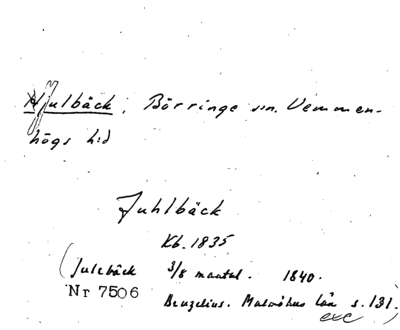 Hjulbäck, Börringe sn. Vemmen-
högs hd
Juhlbäck
Kb. 1835
(Julebäck 3/8 mantal. 1840.
Nr 7506
Benzelius. Malmöhus län s. 131.)
exc